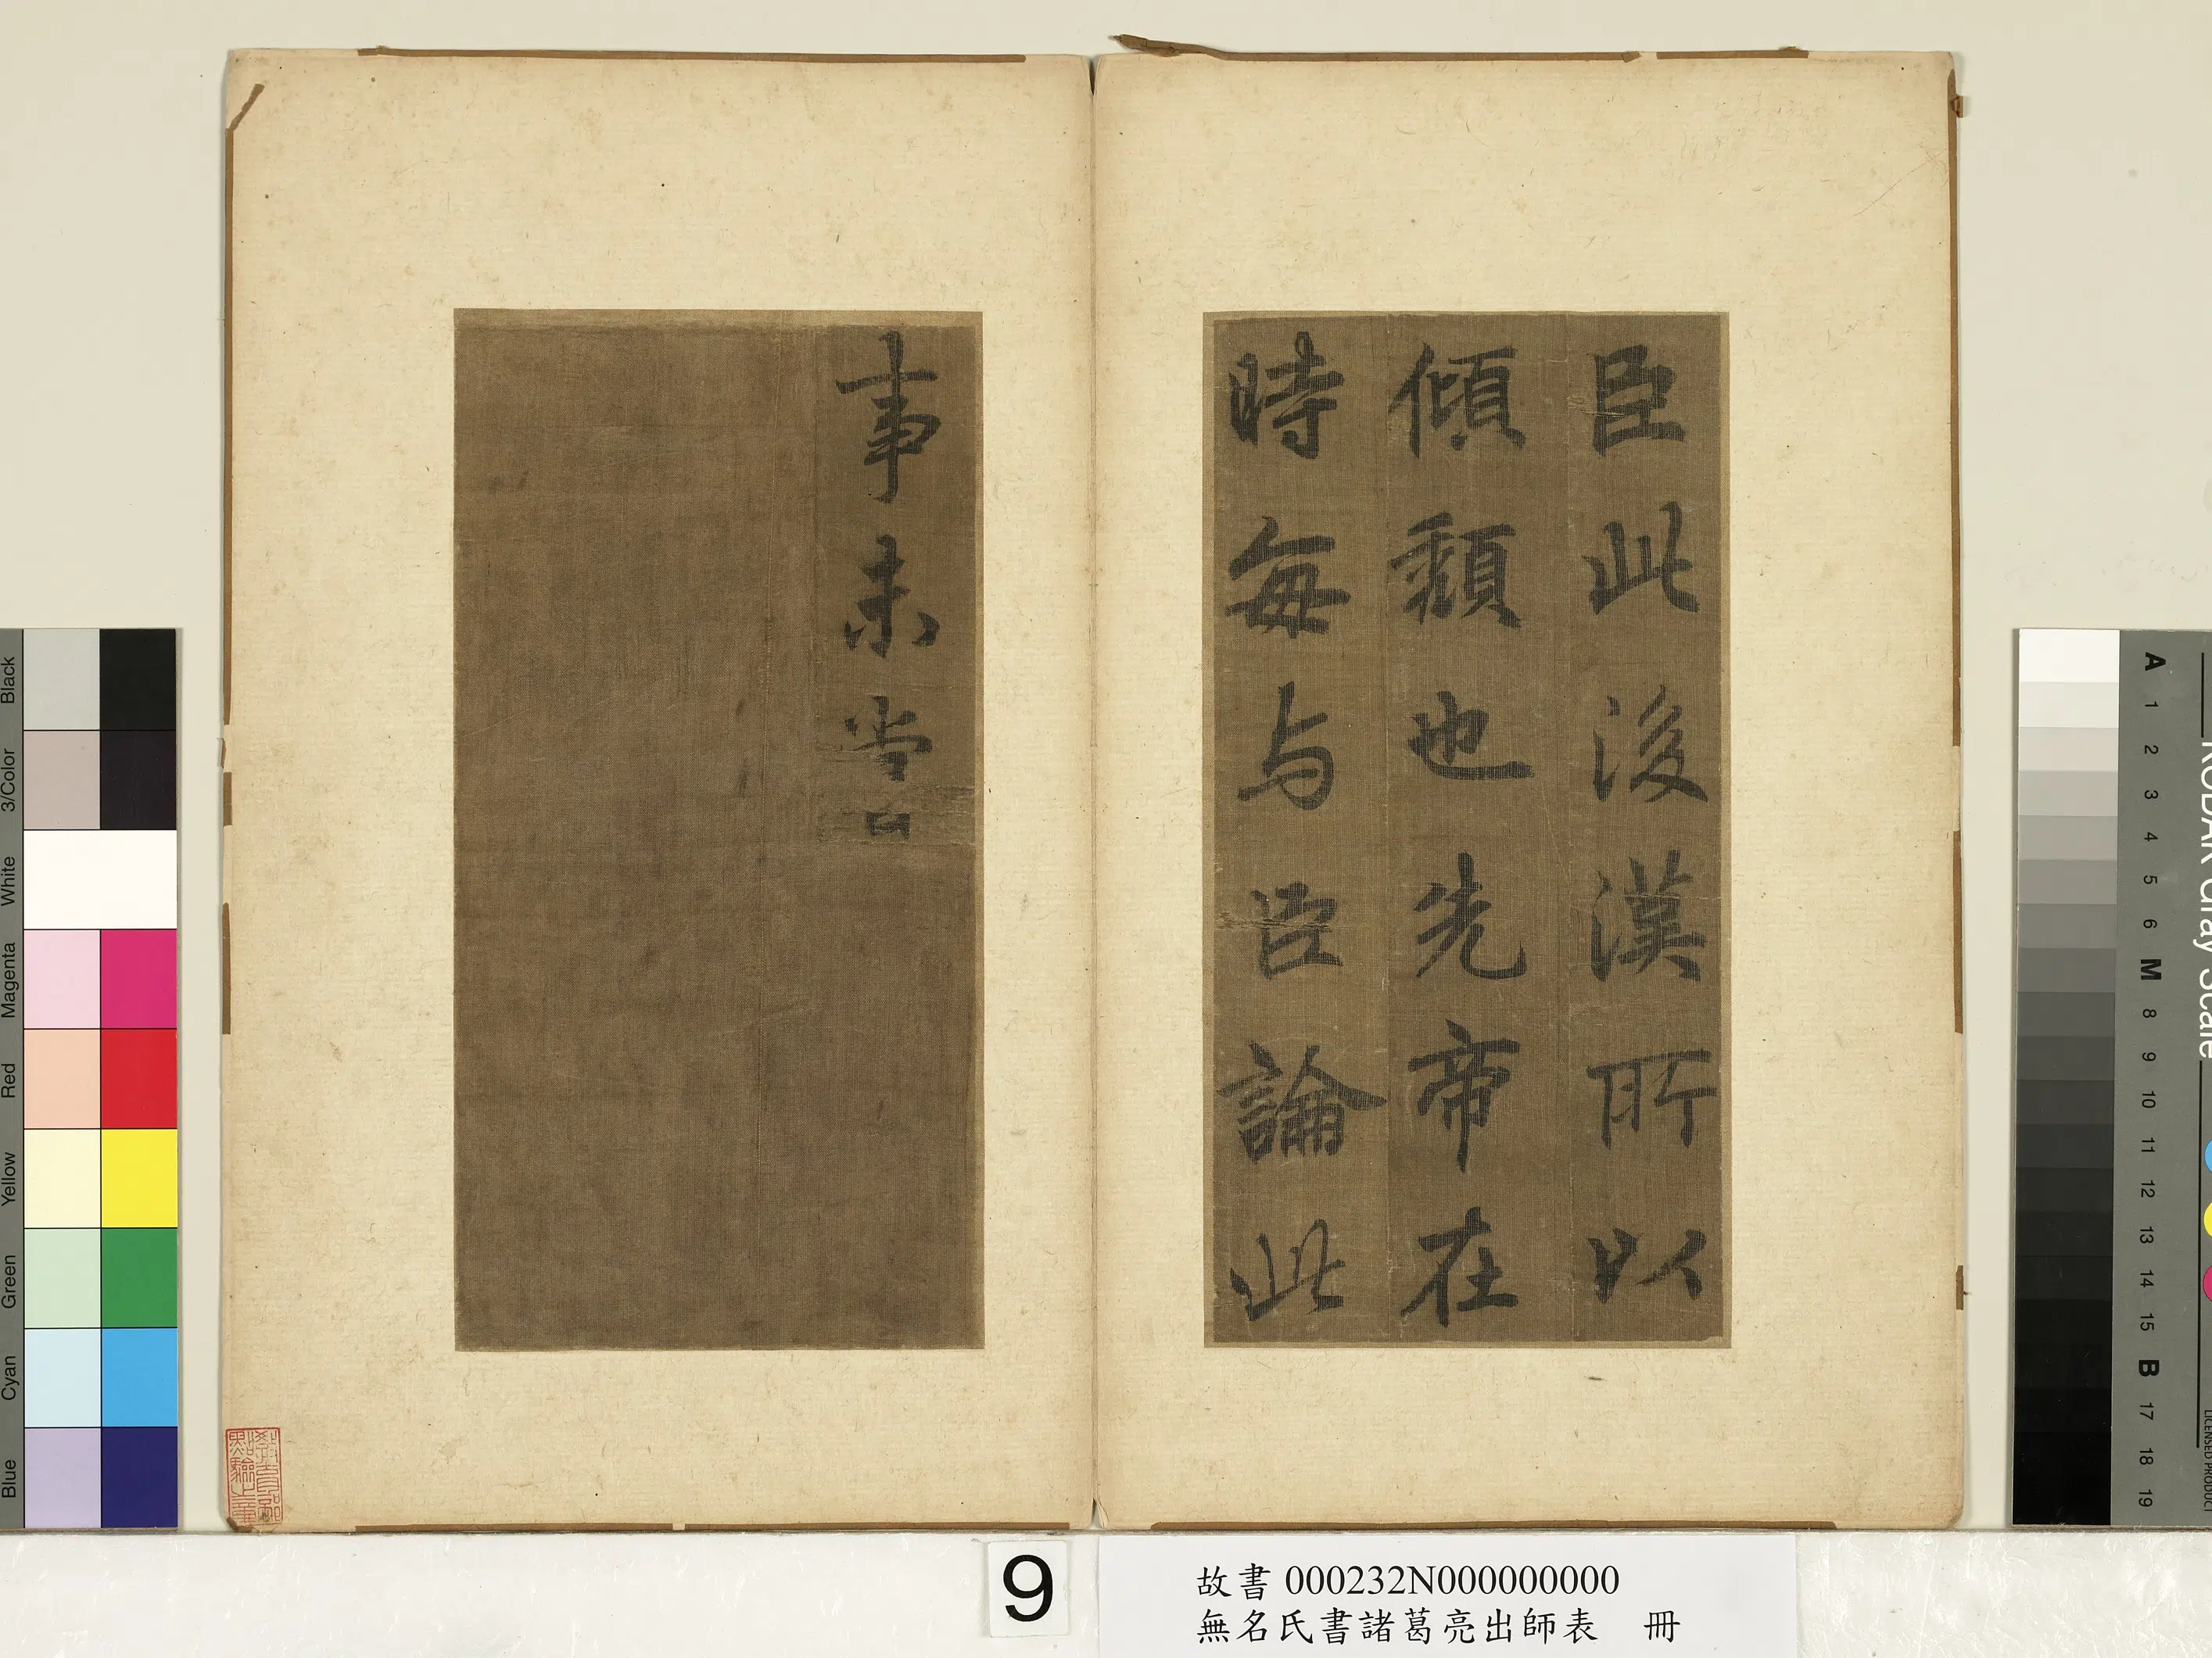 臣此後漢所以
傾頹也先帝在
時每与臣論此
事未甞
故書 000232N000000000
無名氏書諸葛亮出師表 冊
9
Black
3/Color
White
Magenta
Red
Yellow
Green
Cyan
Blue
KODAK Gray Scale
LICENSED PRODUCT
A
1
2
3
4
5
6
M
8
9
10
11
12
13
14
15
B
17
18
19
教育部
點驗之章